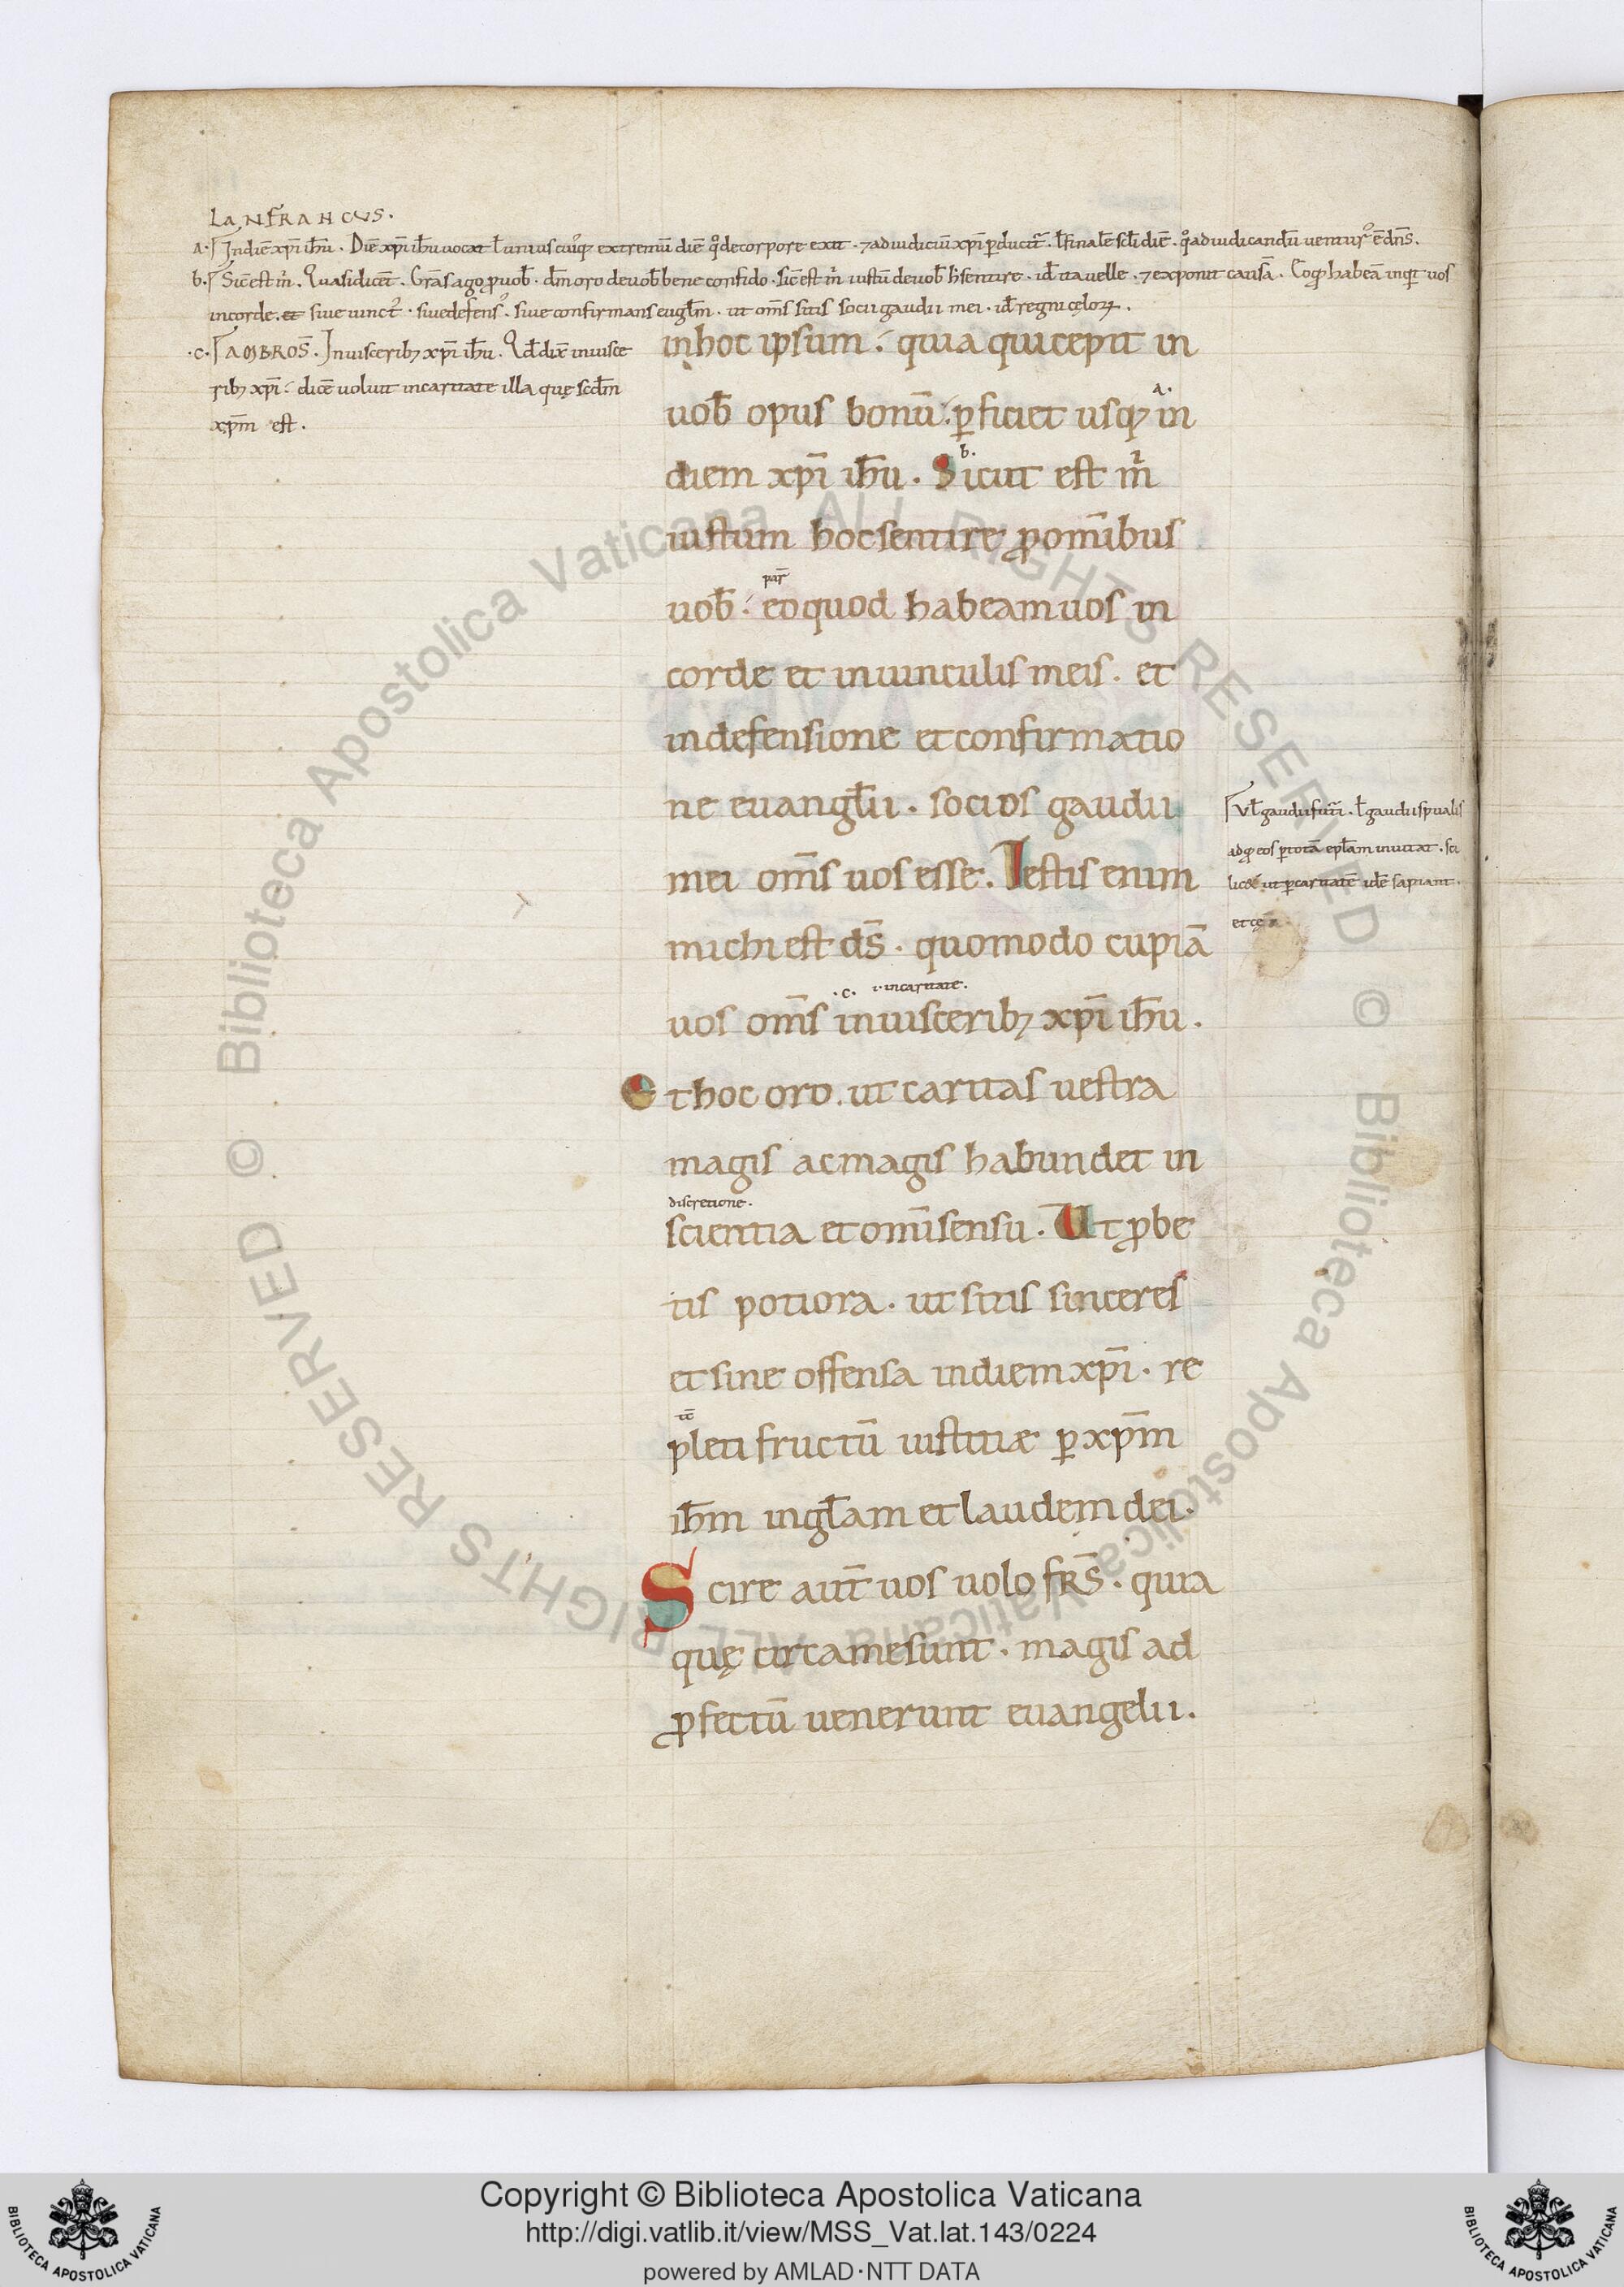 LANFRANCUS.
a. In diē xpī ihū. Diē xpī ihū uocat ł unius cuiusq; extremū diē q° de corpore exit. ⁊ ad iudiciū xpī ꝑducit̄. ł finalē scłi diē. q° ad iudicandū uentur᾽ ē dns̄.
b. Sic̄ est m̄. Quasi dicēt. Gras̄ ago ꝓ uob̄. dm̄ oro de uob̄ bene confido. sic̄ est m̄ iustū de uob̄ h̄ sentire. id̄ ita uelle. ⁊ exponit causā. Eo qđ habeā inquit uos
in corde. et siue uinct᾽. siue defens᾽. siue confirmans euglm̄. ut oms̄ sitis socii gaudii mei. id̄ regni cęlorꝝ.
.c. AMBROS̄. In uiscerib; xpī ihū. Qđ dix̄ in uisce
rib; xpī. dicē uoluit in caritate illa quę scđm
xpm̄ est.
in hoc ipsum. quia qui cepit in
a.
uob̄ opus bonū. ꝑficiet usq; in
b.
diem xpī ihū. Sicut est m̄
iustum hoc sentire ꝓ omībus
uob̄. eo quod habeam uos in
corde et in uinculis meis. et
in defensione et confirmatio
ne euangłii. socios gaudii
mei oms̄ uos esse. Testis enim
michi est ds̄. quomodo cupiā
.c. .i. in caritate.
uos oms̄ in uiscerib; xpī ihū.
Et hoc oro. ut caritas uestra
magis ac magis habundet in
discretione.
scientia et omī sensu. Ut ꝓbe
tis potiora. ut sitis sinceres
et sine offensa in diem xpī. re
pleti fructū iustitiæ ꝑ xpm̄
ihm̄ in głam et laudem dei.
Scire aut̄ uos uolo frs̄. quia
quę circa me sunt. magis ad
ꝓfectū uenerunt euangelii.
Vł gaudii futī. ł gaudii spualis
ad qđ eos ꝑ totā epłam inuitat. sci
licet ut ꝑ caritatē idē sapiant.
Biblioteca Apostolica Vaticana ALL RIGHTS RESERVED © Biblioteca Apostolica Vaticana ALL RIGHTS RESERVED ©
Copyright © Biblioteca Apostolica Vaticana
http://digi.vatlib.it/view/MSS_Vat.lat.143/0224
powered by AMLAD·NTT DATA
BIBLIOTECA APOSTOLICA VATICANA
BIBLIOTECA APOSTOLICA VATICANA